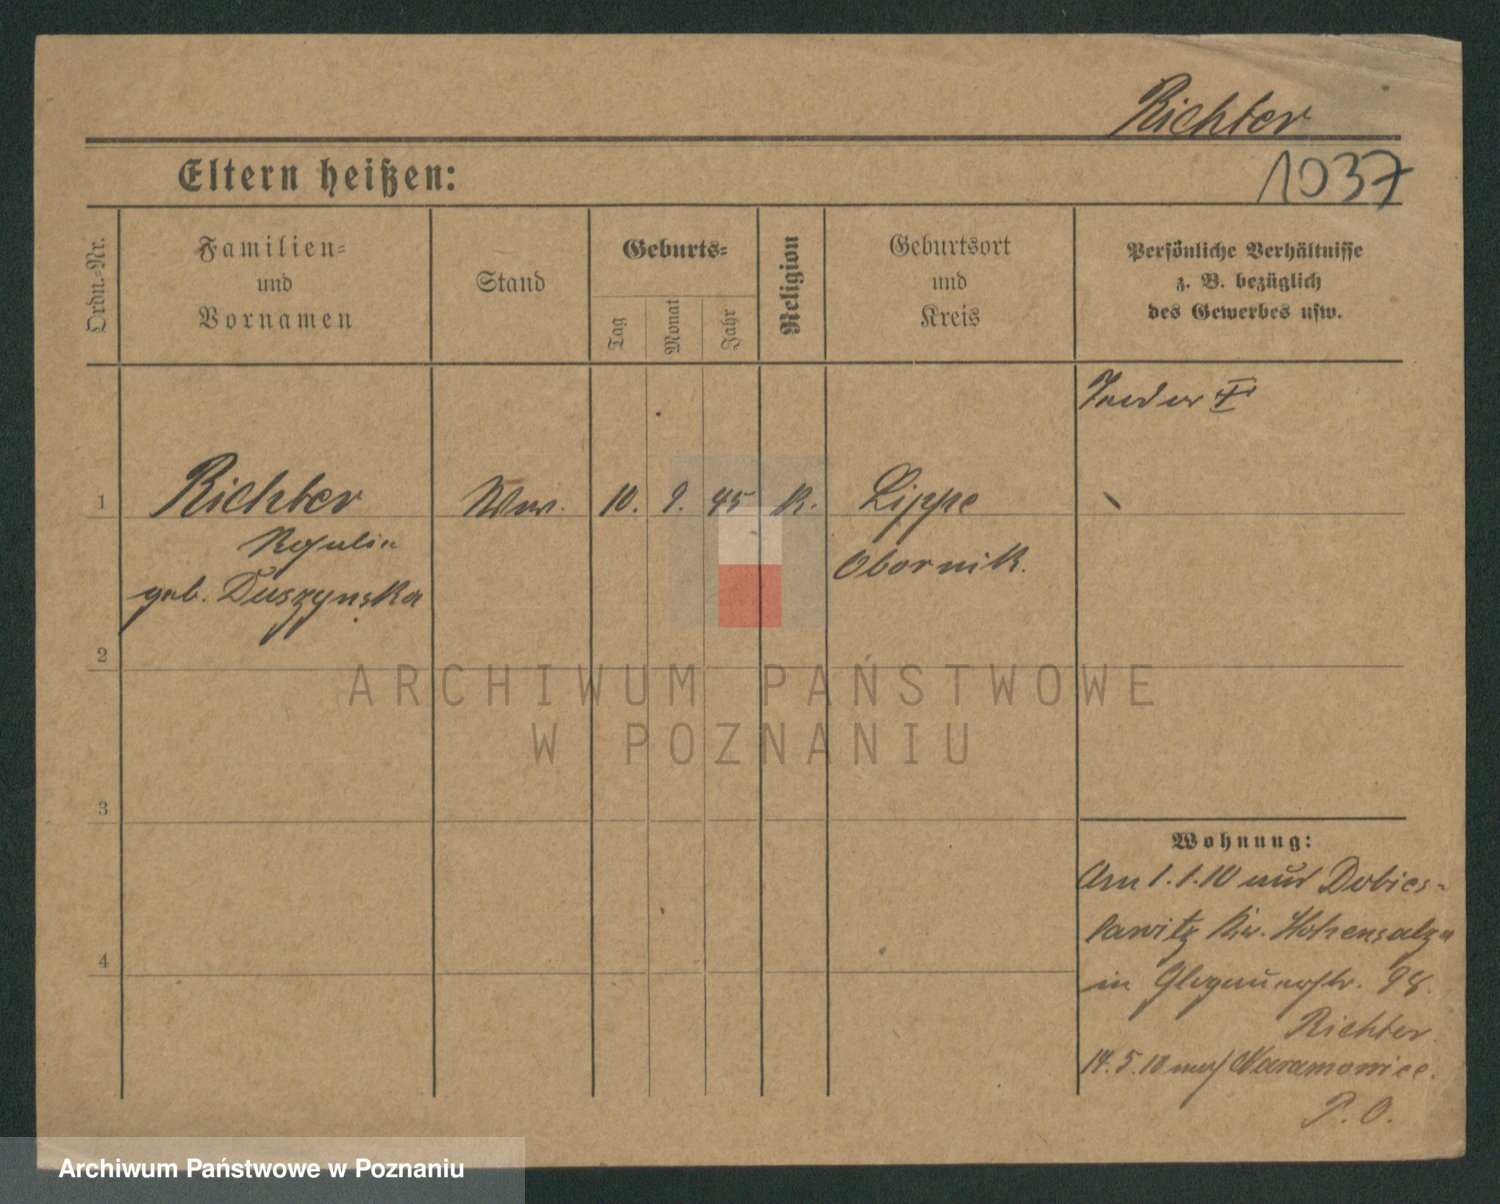 Richter
Eltern heißen:
1037
Ordn.-Nr.
Familien-
und
Vornamen
Stand
Geburts-
Tag
Monat
Jahr
Religion
Geburtsort
und
Kreis
Persönliche Verhältnisse
z. B. bezüglich
des Gewerbes usw.
1
Richter
Ww.
10.
9.
45
K.
Lippe
geb. Duszynska
Obornik.
2
ARCHIWUM PAŃSTWOWE
W POZNANIU
3
Wohnung:
Am 1.1.10 aus Dobies-
lawitz Kr. Hohensalza
in Glogauerstr. 98.
Richter
14.5.10 nach Naramowice.
P. O.
4
Archiwum Państwowe w Poznaniu